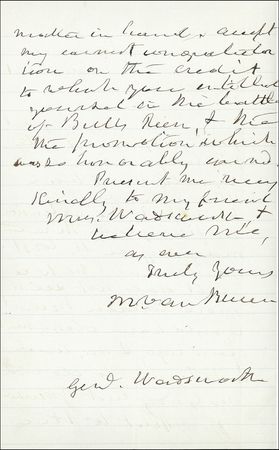 matter in hand & accept
my earnest congratulat
ion on the credit
to which you entitled
yourself in the battle
of Bulls Run, & the
the promotion which
was so honorably earned
Present me very
kindly to my friend
Mrs. Wadsworth &
believe me,
as ever
Truly Yours
M. Van Buren
Genl. Wadsworth